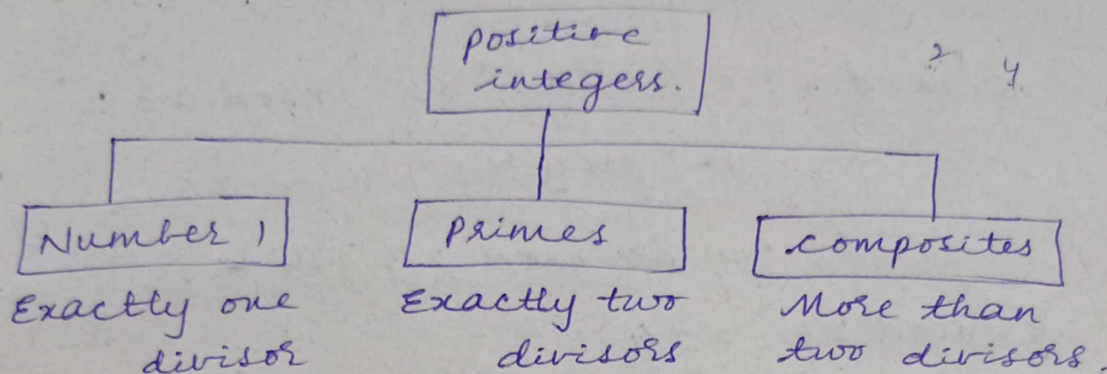 positive
integers.
2 4
Number 1
Primes
composites
Exactly one
divisor
Exactly two
divisors
More than
two divisors.